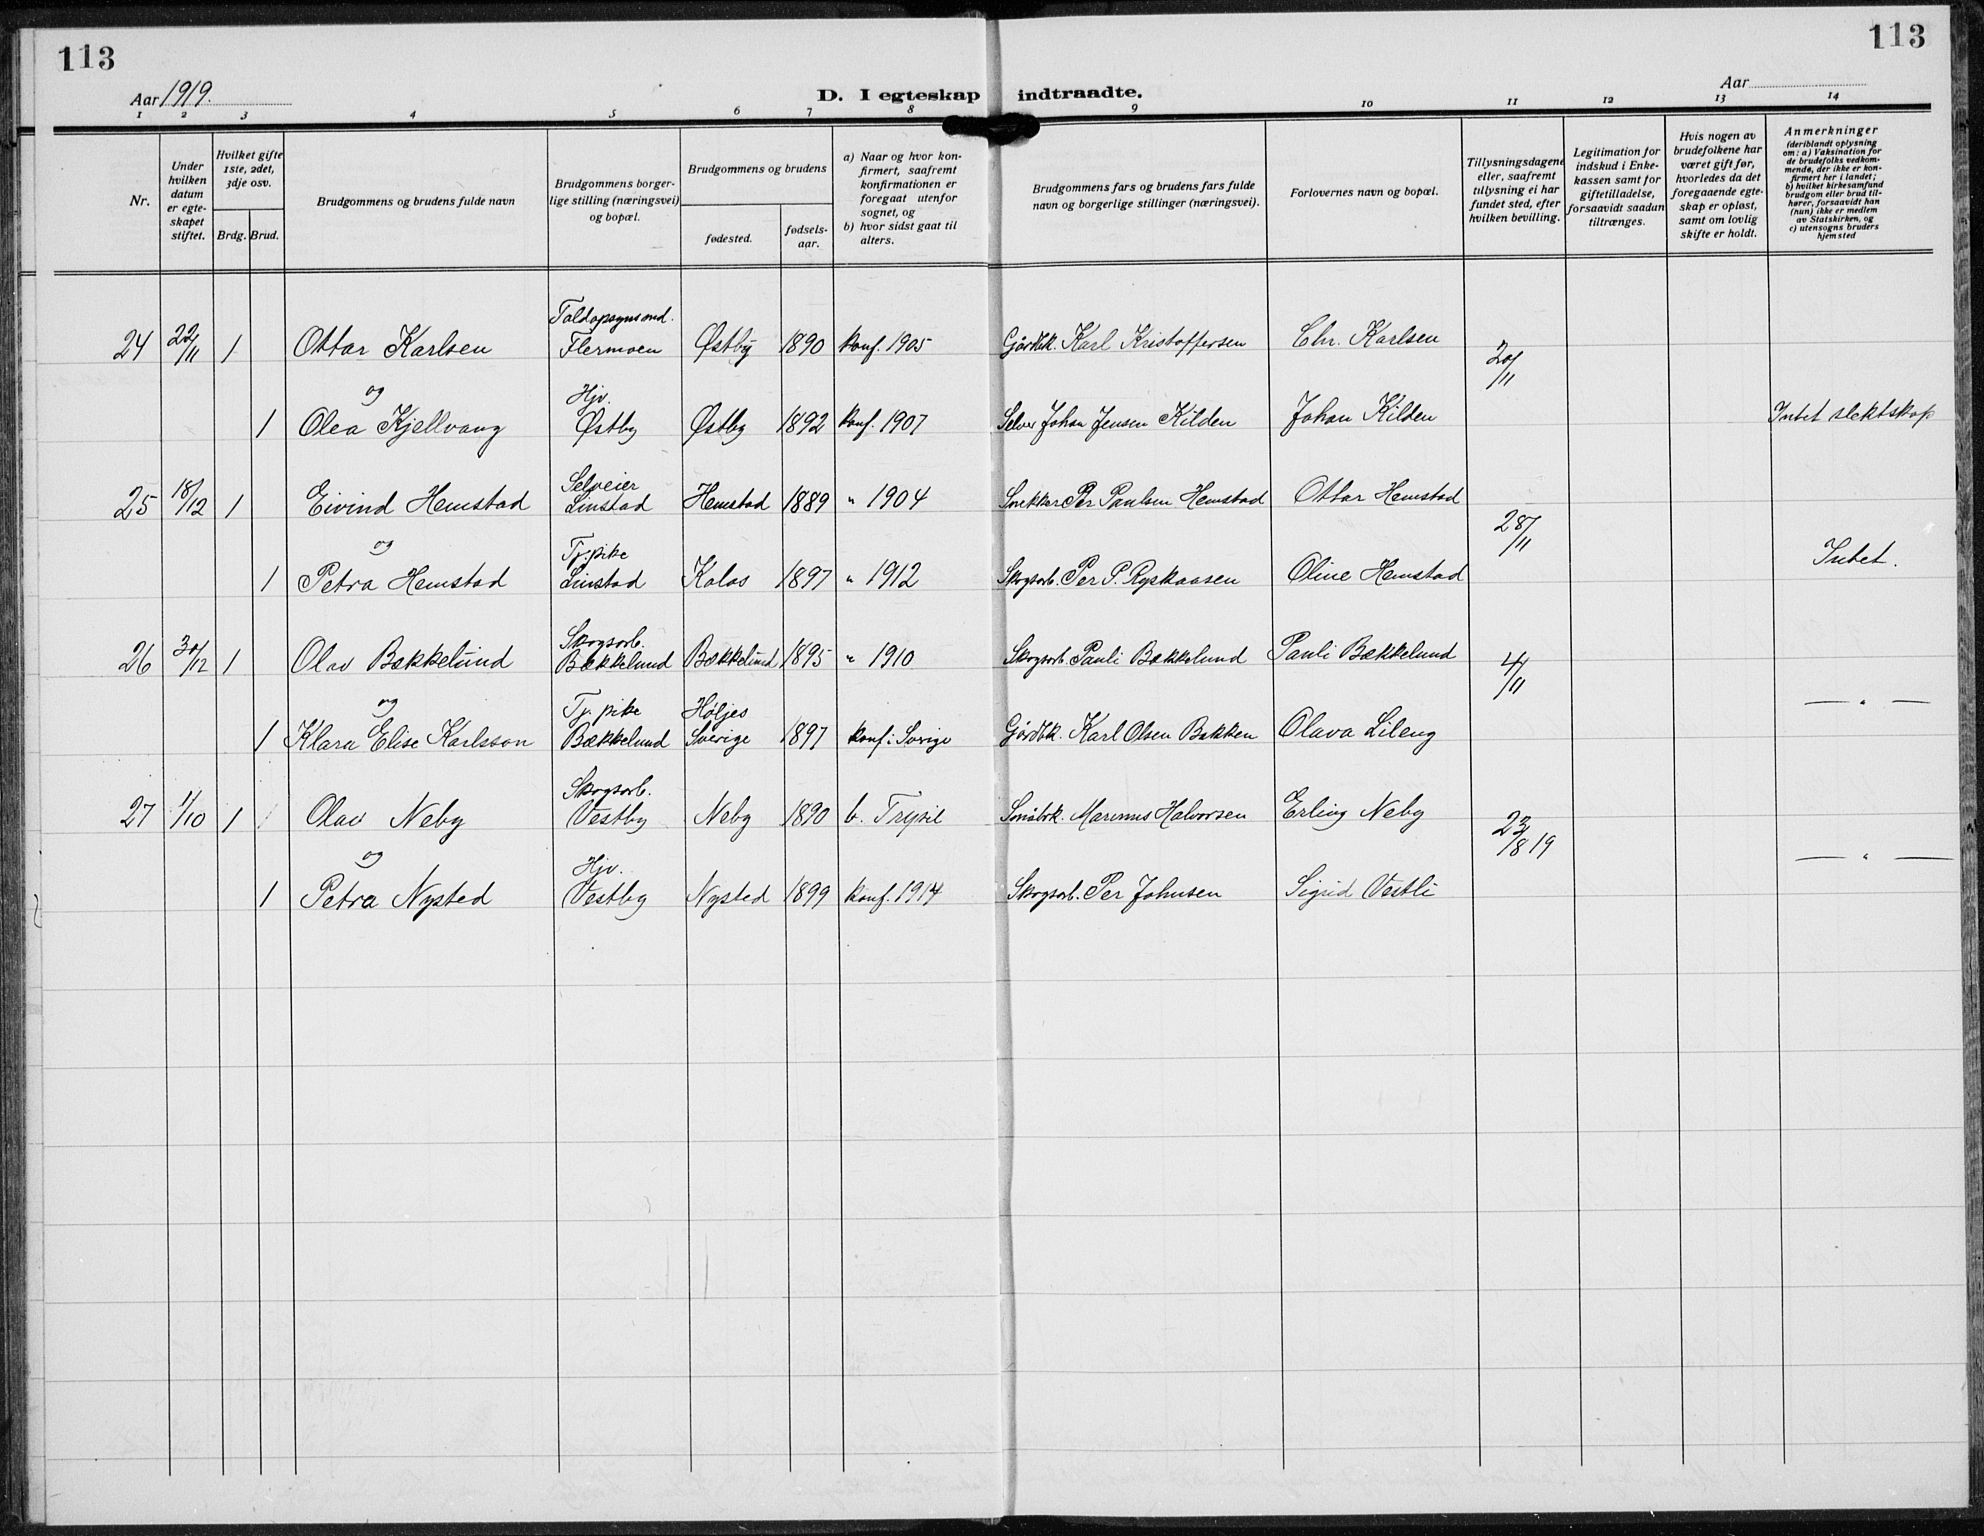 113
113
Aar 1919.
D. I egteskap indtraadte.
Aar
1 2 3 4 5 6 7 8 9 10 11 12 13 14
Nr.
Under hvilken datum er egteskapet stiftet.
Hvilket gifte 1ste, 2det, 3dje osv.
Brdg. Brud.
Brudgommens og brudens fulde navn
Brudgommens borgerlige stilling (næringsvei) og bopæl.
Brudgommens og brudens
fødested.
fødselsaar.
a) Naar og hvor konfirmert, saafremt konfirmationen er foregaat utenfor sognet, og
b) hvor sidst gaat til alters.
Brudgommens fars og brudens fars fulde navn og borgerlige stillinger (næringsvei).
Forlovernes navn og bopæl.
Tillysningsdagene eller, saafremt tillysning ei har fundet sted, efter hvilken bevilling.
Legitimation for indskud i Enkekassen samt for giftetilladelse, forsaavidt saadan tiltrænges.
Hvis nogen av brudefolkene har været gift før, hvorledes da det foregaaende egteskap er opløst, samt om lovlig skifte er holdt.
Anmerkninger (deriblandt oplysning om: a) Vaksination for de brudefolks vedkommende, der ikke er konfirmert her i landet; b) hvilket kirkesamfund brudgom eller brud tilhører, forsaavidt han (hun) ikke er medlem av Statskirken, og c) utensogns bruders hjemsted
Toldopsynsmd.
24 22/11 1 Ottar Karlsen Flermoen Østby 1890 konf. 1905 Gårdbk. Karl Kristoffersen Chr. Karlsen
20/11
og Hjv.
1 Olea Kjellvang Østby Østby 1892 konf. 1907 Selvei Johan Jensen Kilden Johan Kilden Intet slektskap
Selveier
25 18/12 1 Eivind Hemstad Linstad Hemstad 1889 " 1904 Snekker Per Paulsen Hemstad Ottar Hemstad
28/11
og Tj. pike
1 Petra Hemstad Linstad Kolos 1897 " 1912 Skogsarb. Per P. Ryskaasen Oline Hemstad Intet.
Skogsarb.
26 30/12 1 Olav Bækkelund Bækkelund Bækkelund 1895 " 1910 Skogsarb. Pauli Bækkelund Pauli Bækkelund
4/11
og Tj. pike Høljes — " —
1 Klara Elise Karlsson Bækkelund Sverige 1897 konf. i Sverige Gårdbk. Karl Olsen Bakken Olava Lileng
Skogsarb.
27 1/10 1 Olav Neby Vestby Neby 1890 b. Trysil Småbk. Marenus Halvorsen Erling Neby
23/8 19
og Hjv. — " —
1 Petra Nysted Vestby Nysted 1899 konf. 1914 Skogsarb. Per Johnsen Sigrid Vestli